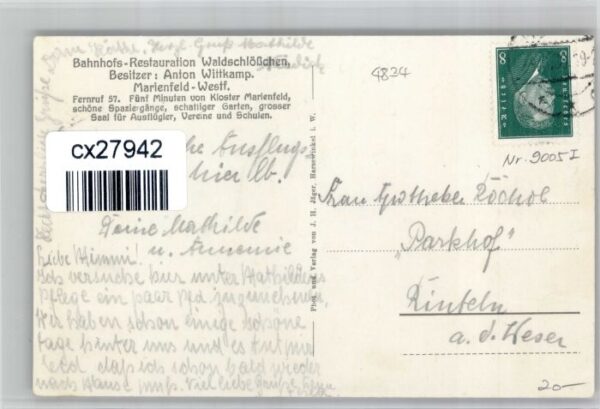 Herzl. Gruß Mathilde
Bahnhofs-Restauration Waldschlößchen,
Besitzer: Anton Wittkamp.
Marienfeld-Westf.
Fernruf 57. Fünf Minuten von Kloster Marienfeld,
schöne Spaziergänge, schattiger Garten, grosser
Saal für Ausflügler, Vereine und Schulen.
cx27942
Ausflugs-
hier
Deine Mathilde
u. Annemie
Liebe Mimmi!
Ich versuche hier unter Mathildens
Pflege ein paar Pfd. zuzunehmen.
Wir haben schon einige schöne
Tage hinter uns und es tut mir
leid daß ich schon bald wieder
nach Hause muß. Viel liebe Grüße
Phot. und Verlag von J. H. Jäger, Harsewinkel i. W.
4834
8 8
Nr. 9005 I
Frau Apotheker
"Parkhof"
Rinteln
a. d. Weser
20-